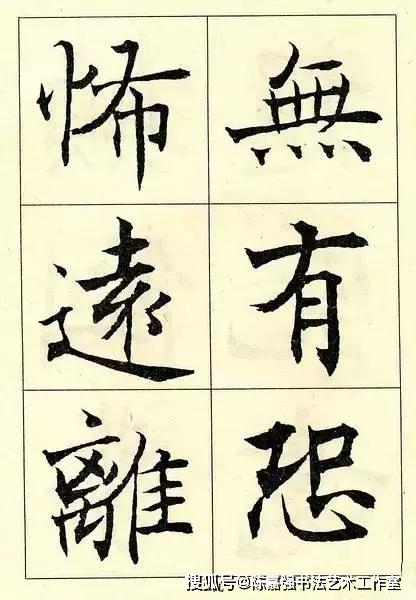 無有恐
怖遠離
搜狐号@陈嘉强书法艺术工作室